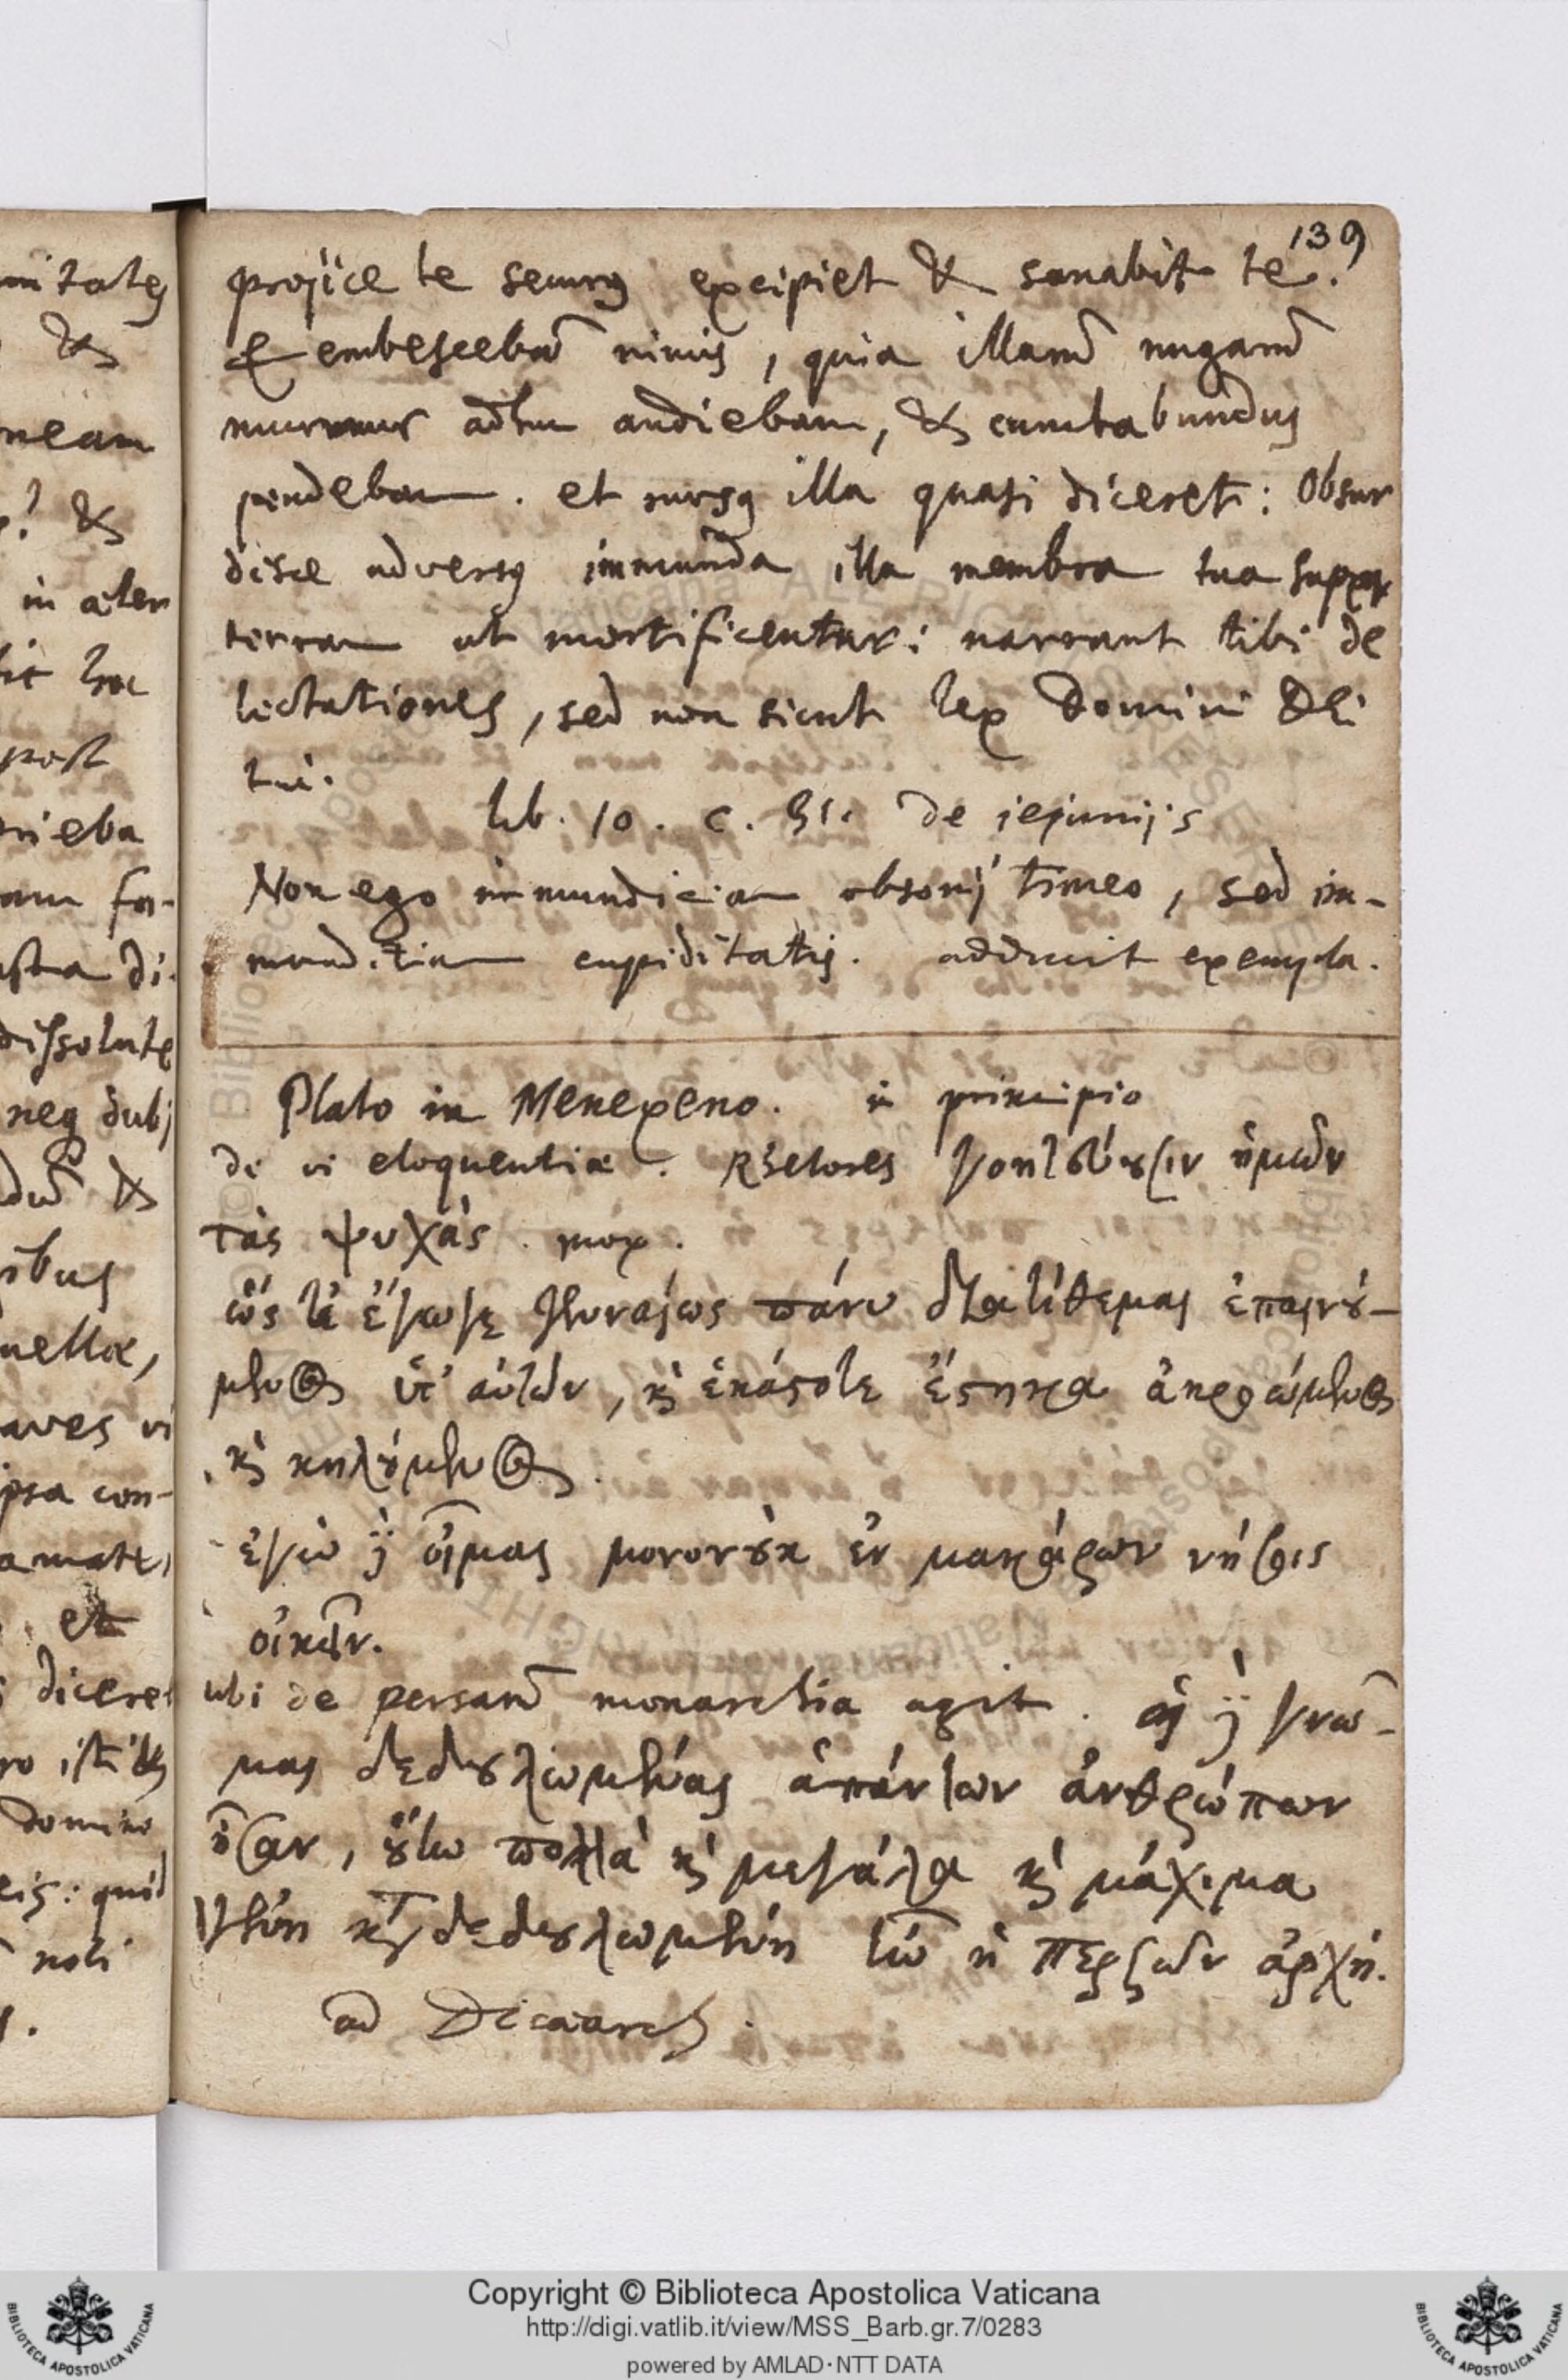 139
projice te securꝯ excipiet & sanabit te.
& erubescebā nimis, quia illarū nugarū
murmur adhuc audiebam, & cunctabundus
pendebam. et rursꝯ illa quasi diceret: Obsur
disce adversꝯ immunda illa membra tua super
terram ut mortificentur: narrant tibi de
lectationes, sed non sicut lex Domini Dei
tui.
lib. 10. c. 31. de jejunijs
Non ego immundiciam obsonij timeo, sed im-
munditiam cupiditatis. adducit exempla.
Plato in Menexeno. in principio
de vi eloquentiæ. Rhetores γοητεύȣσιν ἡμῶν
τὰς ψυχάς. mox.
ὥς τε ἔγωγε γενναίως πάνυ διατίθεμαι ἐπαινȣ́-
μενος ὑπ' αὐτῶν, ϗ ἑκάστοτε ἕστηκα ἀκροώμενος
ϗ κηλȣ́μενος.
ἐγὼ δὲ οἶμαι μονονȣκ ἐν μακάρων νήσοις
οἰκεῖν.
ubi de persarū monarchia agit. αἱ δὲ γνῶ-
μαι δεδȣλωμέναι ἁπάντων ἀνθρώπων
ἦσαν, ȣ̔́τω πολλὰ ϗ μεγάλα ϗ μάχιμα
γένη καταδεδȣλωμένη ἦν ἡ Περσῶν ἀρχή.
ad Dicæarch.
mitates
&
neam
? &
in alter
post
dissolute
neq dubj
&
ibus
uellæ,
aves vi
ipsa con-
et
diceret
domino
eis: quid
noli
Copyright © Biblioteca Apostolica Vaticana
http://digi.vatlib.it/view/MSS_Barb.gr.7/0283
powered by AMLAD·NTT DATA
BIBLIOTECA APOSTOLICA VATICANA
BIBLIOTECA APOSTOLICA VATICANA